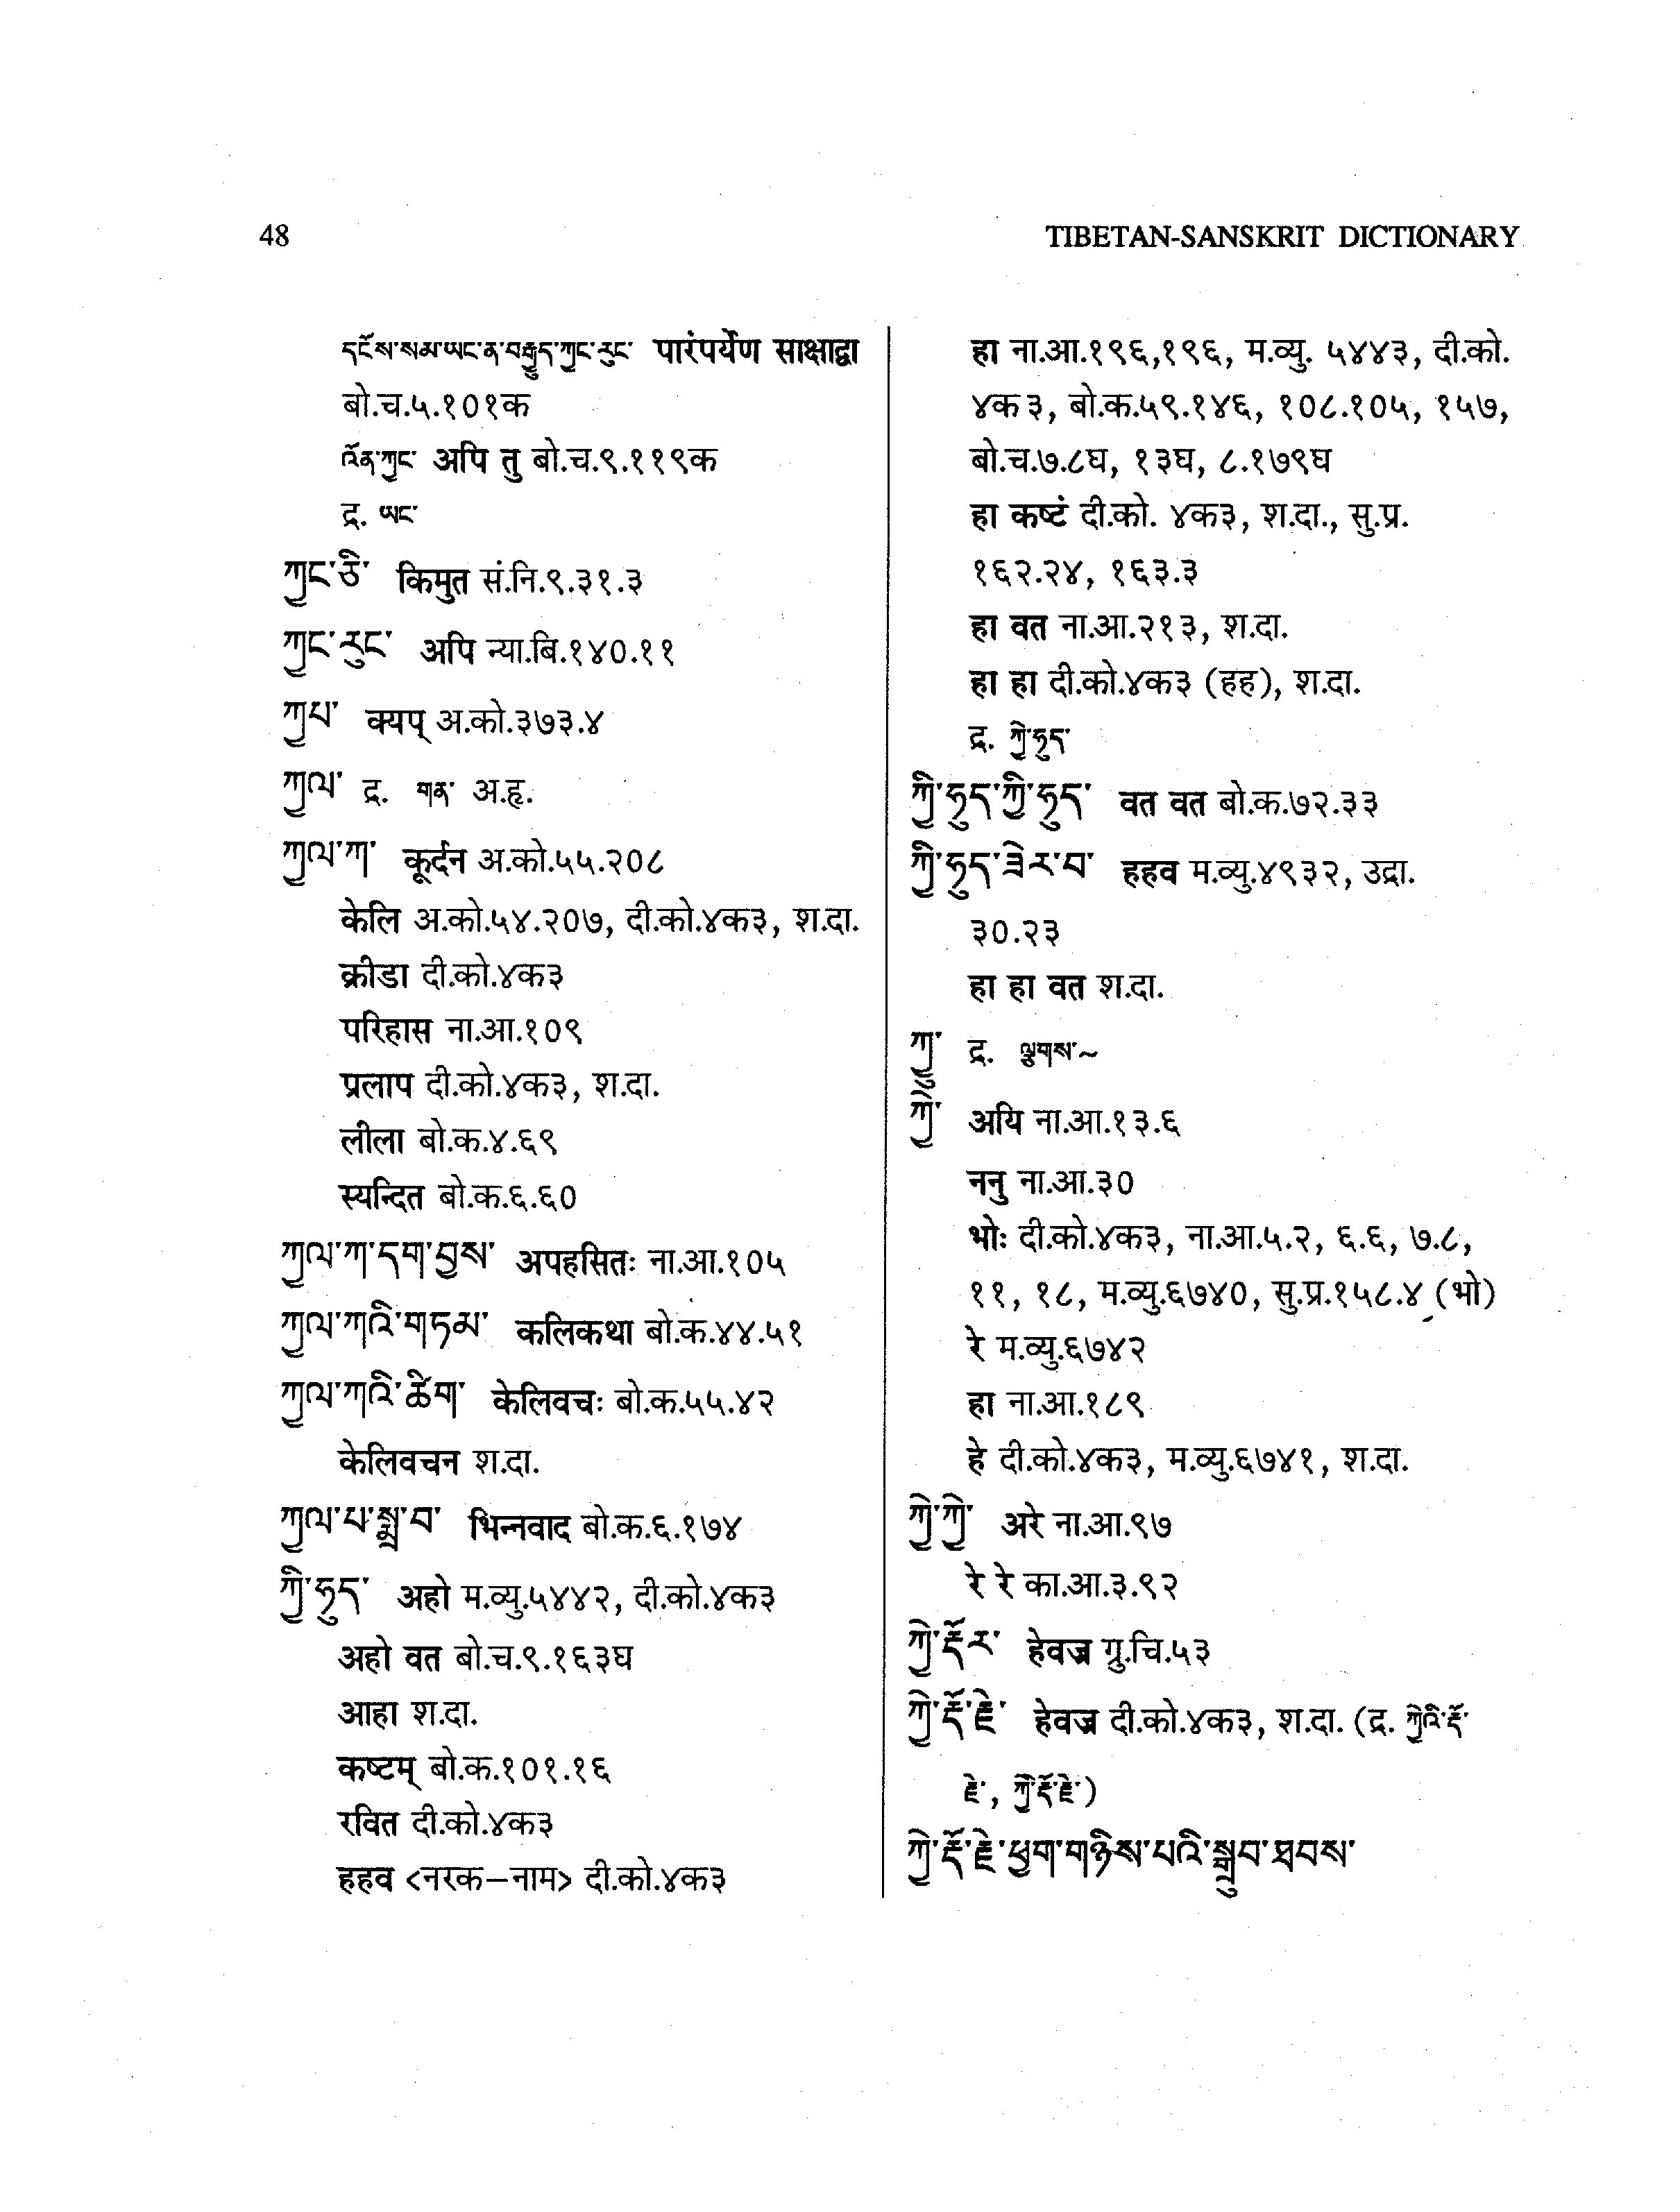 48
TIBETAN-SANSKRIT DICTIONARY
དངོས་སམ་ཡང་ན་བརྒྱུད་ཀྱང་རུང་ पारंपर्येण साक्षाद्वा
बो.च.५.१०१क
འོན་ཀྱང་ अपि तु बो.च.९.११९क
द्र. ཡང་
ཀྱང་ཅི་ किमुत सं.नि.९.३१.३
ཀྱང་རུང་ अपि न्या.बि.१४०.११
ཀྱཔ་ क्यप् अ.को.३७३.४
ཀྱལ་ द्र. གན་ अ.हृ.
ཀྱལ་ཀ་ कूर्दन अ.को.५५.२०८
केलि अ.को.५४.२०७, दी.को.४क३, श.दा.
क्रीडा दी.को.४क३
परिहास ना.आ.१०९
प्रलाप दी.को.४क३, श.दा.
लीला बो.क.४.६९
स्यन्दित बो.क.६.६०
ཀྱལ་ཀ་དག་བྱས་ अपहसितः ना.आ.१०५
ཀྱལ་ཀའི་གཏམ་ कलिकथा बो.क.४४.५१
ཀྱལ་ཀའི་ཚིག་ केलिवचः बो.क.५५.४२
केलिवचन श.दा.
ཀྱལ་པ་སྨྲ་བ་ भिन्नवाद बो.क.६.१७४
ཀྱི་ཧུད་ अहो म.व्यु.५४४२, दी.को.४क३
अहो वत बो.च.९.१६३घ
आहा श.दा.
कष्टम् बो.क.१०१.१६
रवित दी.को.४क३
हहव <नरक–नाम> दी.को.४क३
हा ना.आ.१९६,१९६, म.व्यु. ५४४३, दी.को.
४क३, बो.क.५९.१४६, १०८.१०५, १५७,
बो.च.७.८घ, १३घ, ८.१७९घ
हा कष्टं दी.को. ४क३, श.दा., सु.प्र.
१६२.२४, १६३.३
हा वत ना.आ.२१३, श.दा.
हा हा दी.को.४क३ (हह), श.दा.
द्र. ཀྱེ་ཧུད་
ཀྱི་ཧུད་ཀྱི་ཧུད་ वत वत बो.क.७२.३३
ཀྱི་ཧུད་ཟེར་བ་ हहव म.व्यु.४९३२, उद्रा.
३०.२३
हा हा वत श.दा.
ཀྱུ་ द्र. ལྕགས་~
ཀྱེ་ अयि ना.आ.१३.६
ननु ना.आ.३०
भोः दी.को.४क३, ना.आ.५.२, ६.६, ७.८,
११, १८, म.व्यु.६७४०, सु.प्र.१५८.४ (भो)
रे म.व्यु.६७४२
हा ना.आ.१८९
हे दी.को.४क३, म.व्यु.६७४१, श.दा.
ཀྱེ་ཀྱེ་ अरे ना.आ.९७
रे रे का.आ.३.९२
ཀྱེ་རྡོར་ हेवज्र गु.चि.५३
ཀྱེ་རྡོ་རྗེ་ हेवज्र दी.को.४क३, श.दा. (द्र. ཀྱེའི་རྡོ་
རྗེ་, ཀྱཻ་རྡོ་རྗེ་)
ཀྱེ་རྡོ་རྗེ་ཕྱག་གཉིས་པའི་སྒྲུབ་ཐབས་